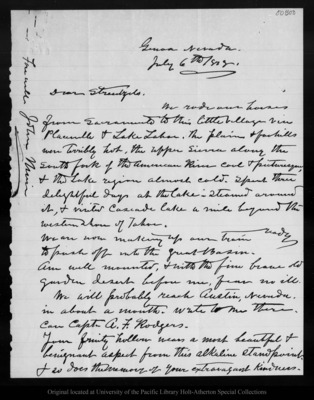 Genoa Nevada.
July 6th/1878.
Dear Strentzels.
We rode our horses
from Sacramento to this little village via
Placerville & Lake Tahoe. The plains & foothills
were terribly hot, the upper Sierra along the
South fork of the American River cool & picturesque,
& the Lake region almost cold. Spent three
delightful days at the Lake - steamed around
it, & visited Cascade Lake a mile beyond the
western shore of Tahoe.
We are now making up our train ready
to push off into the Great Basin.
Am well mounted, & with the fine brave old
garden desert before me, fear no ill.
We will probably reach Austin, Nevada,
in about a month. Write to me there.
Care Captn A. F. Rodgers.
Your fruity hollow wears a most beautiful &
benignant aspect from this alkaline standpoint
& so does the memory of your extravagant kindness.
Farewell
John Muir
Original located at University of the Pacific Library Holt-Atherton Special Collections